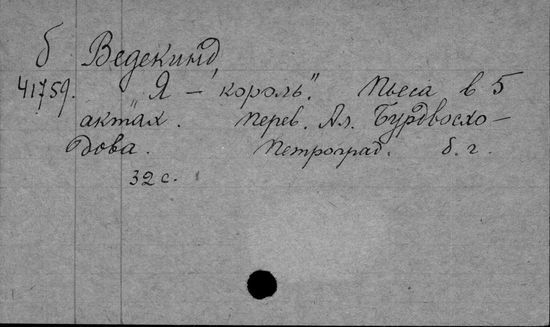 б Ведекинд,
41759. Я – "король". Пьеса в 5
актах. Перев. Ал. Бурдвосхо-
дова. Петроград. б.г.
32 с.